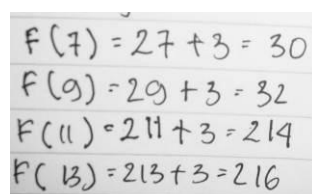 F(7) = 27 + 3 = 30
F(9) = 29 + 3 = 32
F(11) = 211 + 3 = 214
F(13) = 213 + 3 = 216